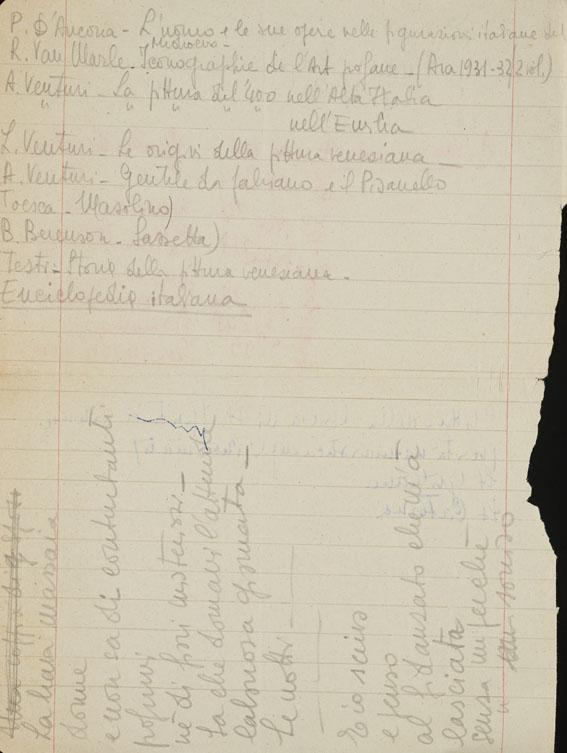 P. D'Ancona - L'uomo e le sue opere nelle figurazioni italiane del
Medioevo -
R. Van Marle - Iconographie de l'Art profane - (Aia 1931-32, 2 vol.)
A. Venturi - La pittura del '400 nell'Alta Italia
" " " " " nell'Emilia
L. Venturi - Le origini della pittura veneziana -
A. Venturi - Gentile da Fabriano e il Pisanello
Toesca - Masolino)
B. Berenson - Sassetta)
Testi - Storia della pittura veneziana -
Enciclopedia italiana
La brava massaia
dorme
e non sa di conturbanti
profumi
nè di fiori misteriosi -
Sa che domani l'attende
laboriosa giornata -
Le notti -
E io scrivo
e penso
al fidanzato che m'ha
lasciata
senza un perchè
" sorriso